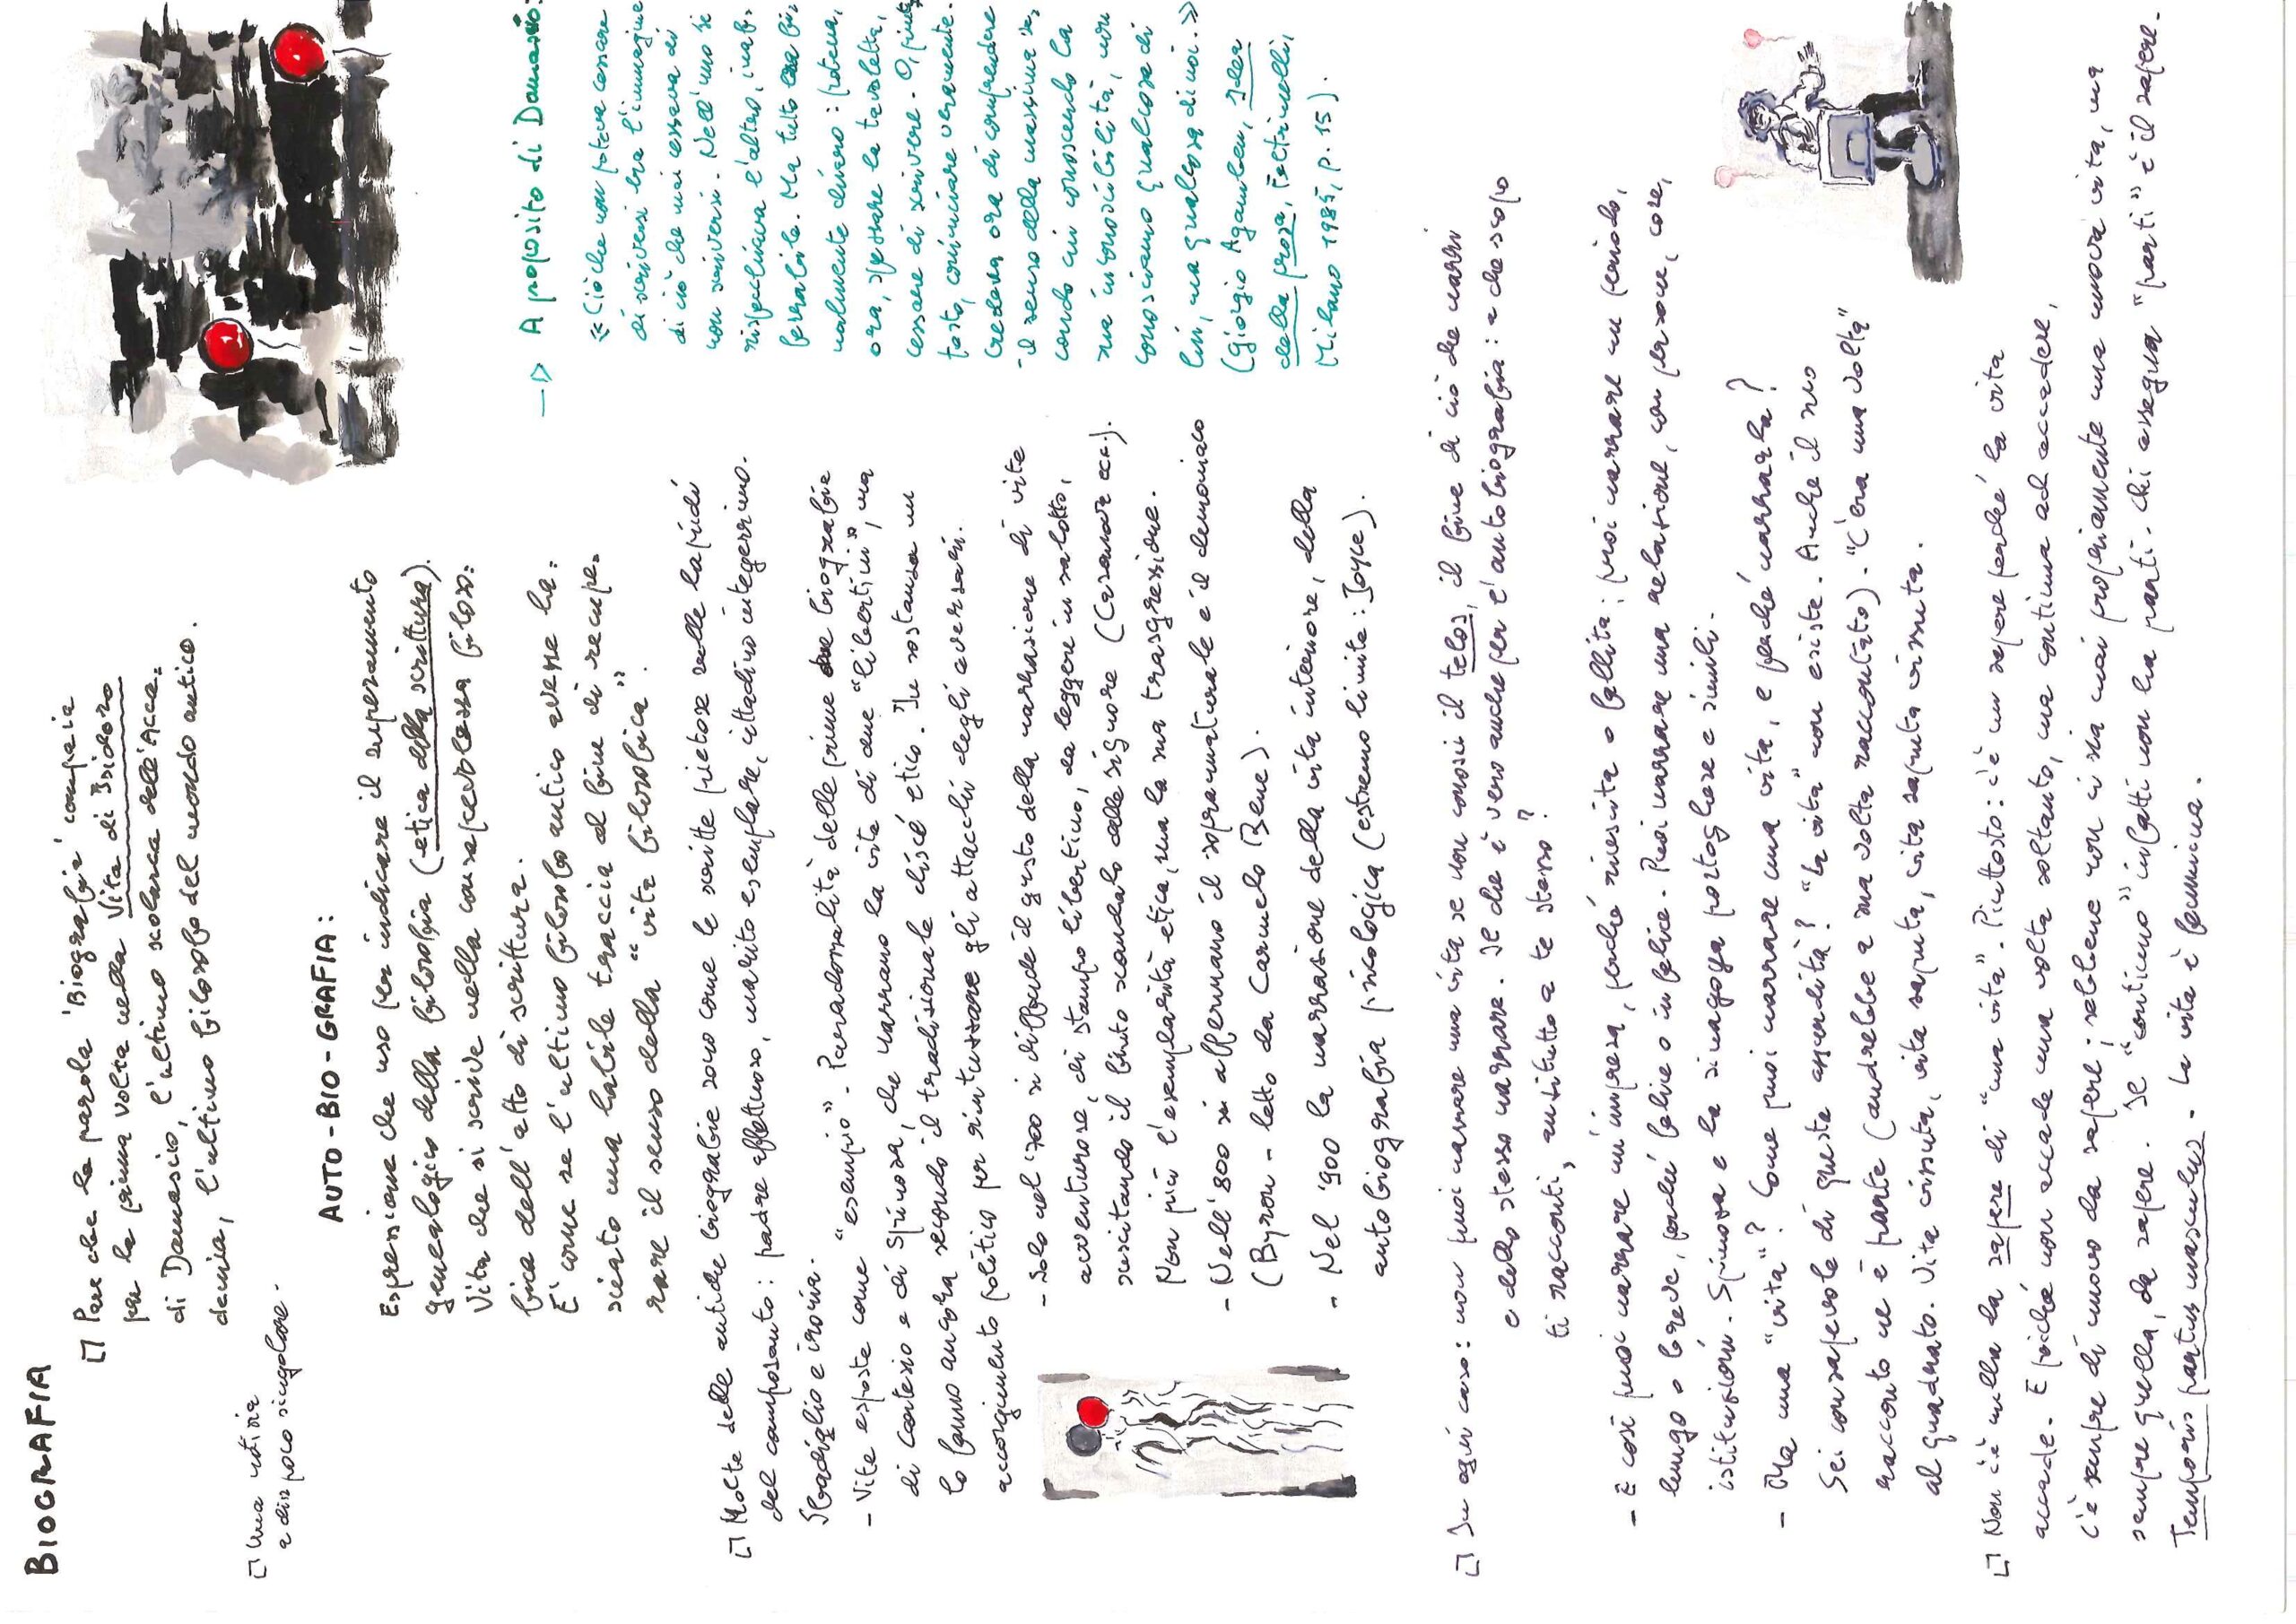 BIOGRAFIA
□ Pare che la parola 'Biografia' compaia
per la prima volta nella Vita di Isidoro
di Damascio, l'ultimo scolarca dell'Acca=
demia, l'ultimo filosofo del mondo antico.
□ Una notizia
a dir poco singolare.
AUTO-BIO-GRAFIA:
Espressione che uso per indicare il superamento
genealogico della filosofia (etica della scrittura).
Vita che si scrive nella consapevolezza filoso=
fica dell'atto di scrittura.
È come se l'ultimo filosofo antico avesse la=
sciato una labile traccia al fine di recupe=
rare il senso della "vita filosofica".
—▷ A proposito di Damascio:
«Ciò che non poteva cessare
di scriversi era l'immagine
di ciò che mai cessava di
non scriversi. Nell'uno si
rispecchiava l'altro, inaf=
ferrabile. Ma tutto era fi=
nalmente chiaro: poteva,
ora, spezzare la tavoletta,
cessare di scrivere. O, piut=
tosto, cominciare veramente.
Credeva ora di comprendere
il senso della massima se=
condo cui conoscendo la
sua inconoscibilità, non
conosciamo qualcosa di
lui, ma qualcosa di noi.»
(Giorgio Agamben, Idea
della prosa, Feltrinelli,
Milano 1985, p. 15).
□ Molte delle antiche biografie sono come le scritte pietose sulle lapidi
del camposanto: padre affettuoso, marito esemplare, cittadino integerrimo.
Sbadiglio e ironia.
- Vite esposte come "esempio". Paradossalità delle prime biografie
di contesio e di Spinoza, che narrano la vita di due "libertini", ma
lo fanno ancora secondo il tradizionale clisé etico. In sostanza un
accorgimento politico per rintuzzare gli attacchi degli avversari.
- Solo nel '700 si diffonde il gusto della narrazione di vite
avventurose, di stampo libertino, da leggere in salotto,
suscitando il finto scandalo delle signore (Casanova ecc.).
Non più l'esemplarità etica, ma la sua trasgressione.
- Nell'800 si affermano il sopranaturale e il demoniaco
(Byron - letto da Carmelo Bene).
- Nel '900 la narrazione della vita interiore, della
autobiografia psicologica (estremo limite: Joyce).
□ In ogni caso: non puoi narrare una vita se non conosci il telos, il fine di ciò che narri
e dello stesso narrare. Il che è vero anche per l'autobiografia: a che scopo
ti racconti, anzitutto a te stesso?
- E così puoi narrare un'impresa, perché riuscita o fallita; puoi narrare un periodo,
lungo o breve, perché felice o infelice. Puoi narrare una relazione, con persone, cose,
istituzioni. Spinoza e la sinagoga portoghese e simili.
- Ma una "vita"? Come puoi narrare una vita, e perché narrarla?
Sei consapevole di questa assurdità? "La vita" non esiste. Anche il suo
racconto ne è parte (andrebbe a sua volta raccontato). "C'era una volta"
al quadrato. Vita vissuta, vita saputa, vita saputa vissuta.
□ Non c'è nulla da sapere di "una vita". Piuttosto: c'è un sapere perché la vita
accade. E poiché non accade una volta soltanto, ma continua ad accadere,
c'è sempre di nuovo da sapere; sebbene non ci sia mai propriamente una nuova vita, ma
sempre quella, da sapere. Il "continuo" infatti non ha parti. Chi assegna "parti" è il sapere.
Temporis partus masculus. La vita è femmina.